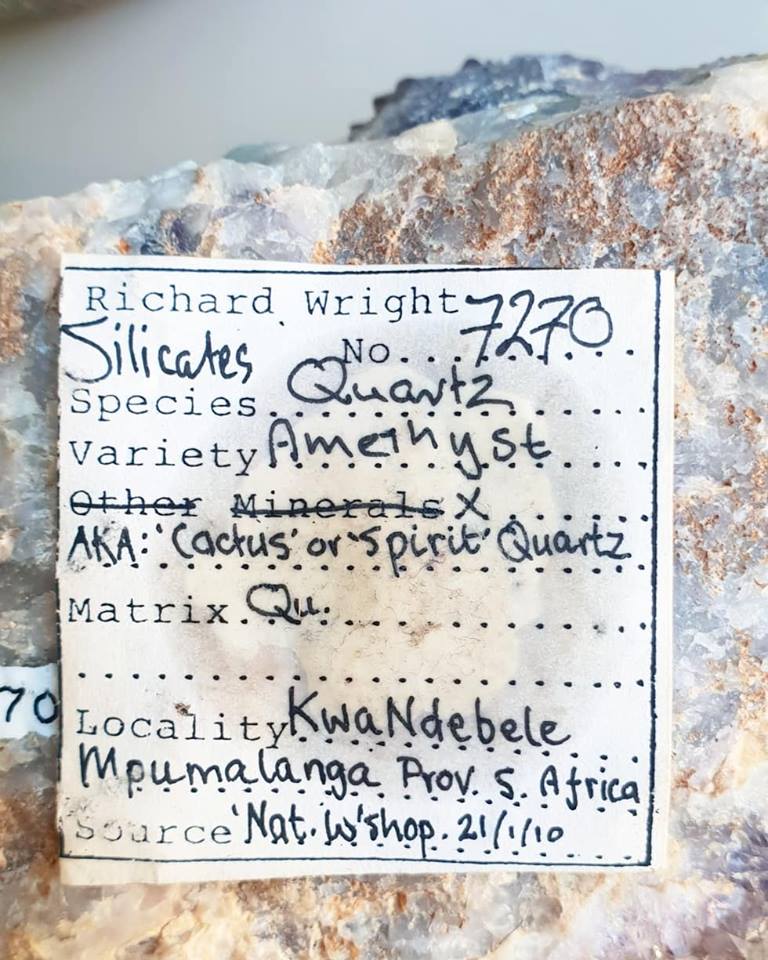 Richard Wright
Silicates No....7270
Species..Quartz
Variety Amethyst
Other Minerals X
AKA: 'Cactus' or 'Spirit' Quartz
Matrix. Qu.
70
Locality KwaNdebele
Mpumalanga Prov. S. Africa
Source 'Nat. W'shop. 21/1/10